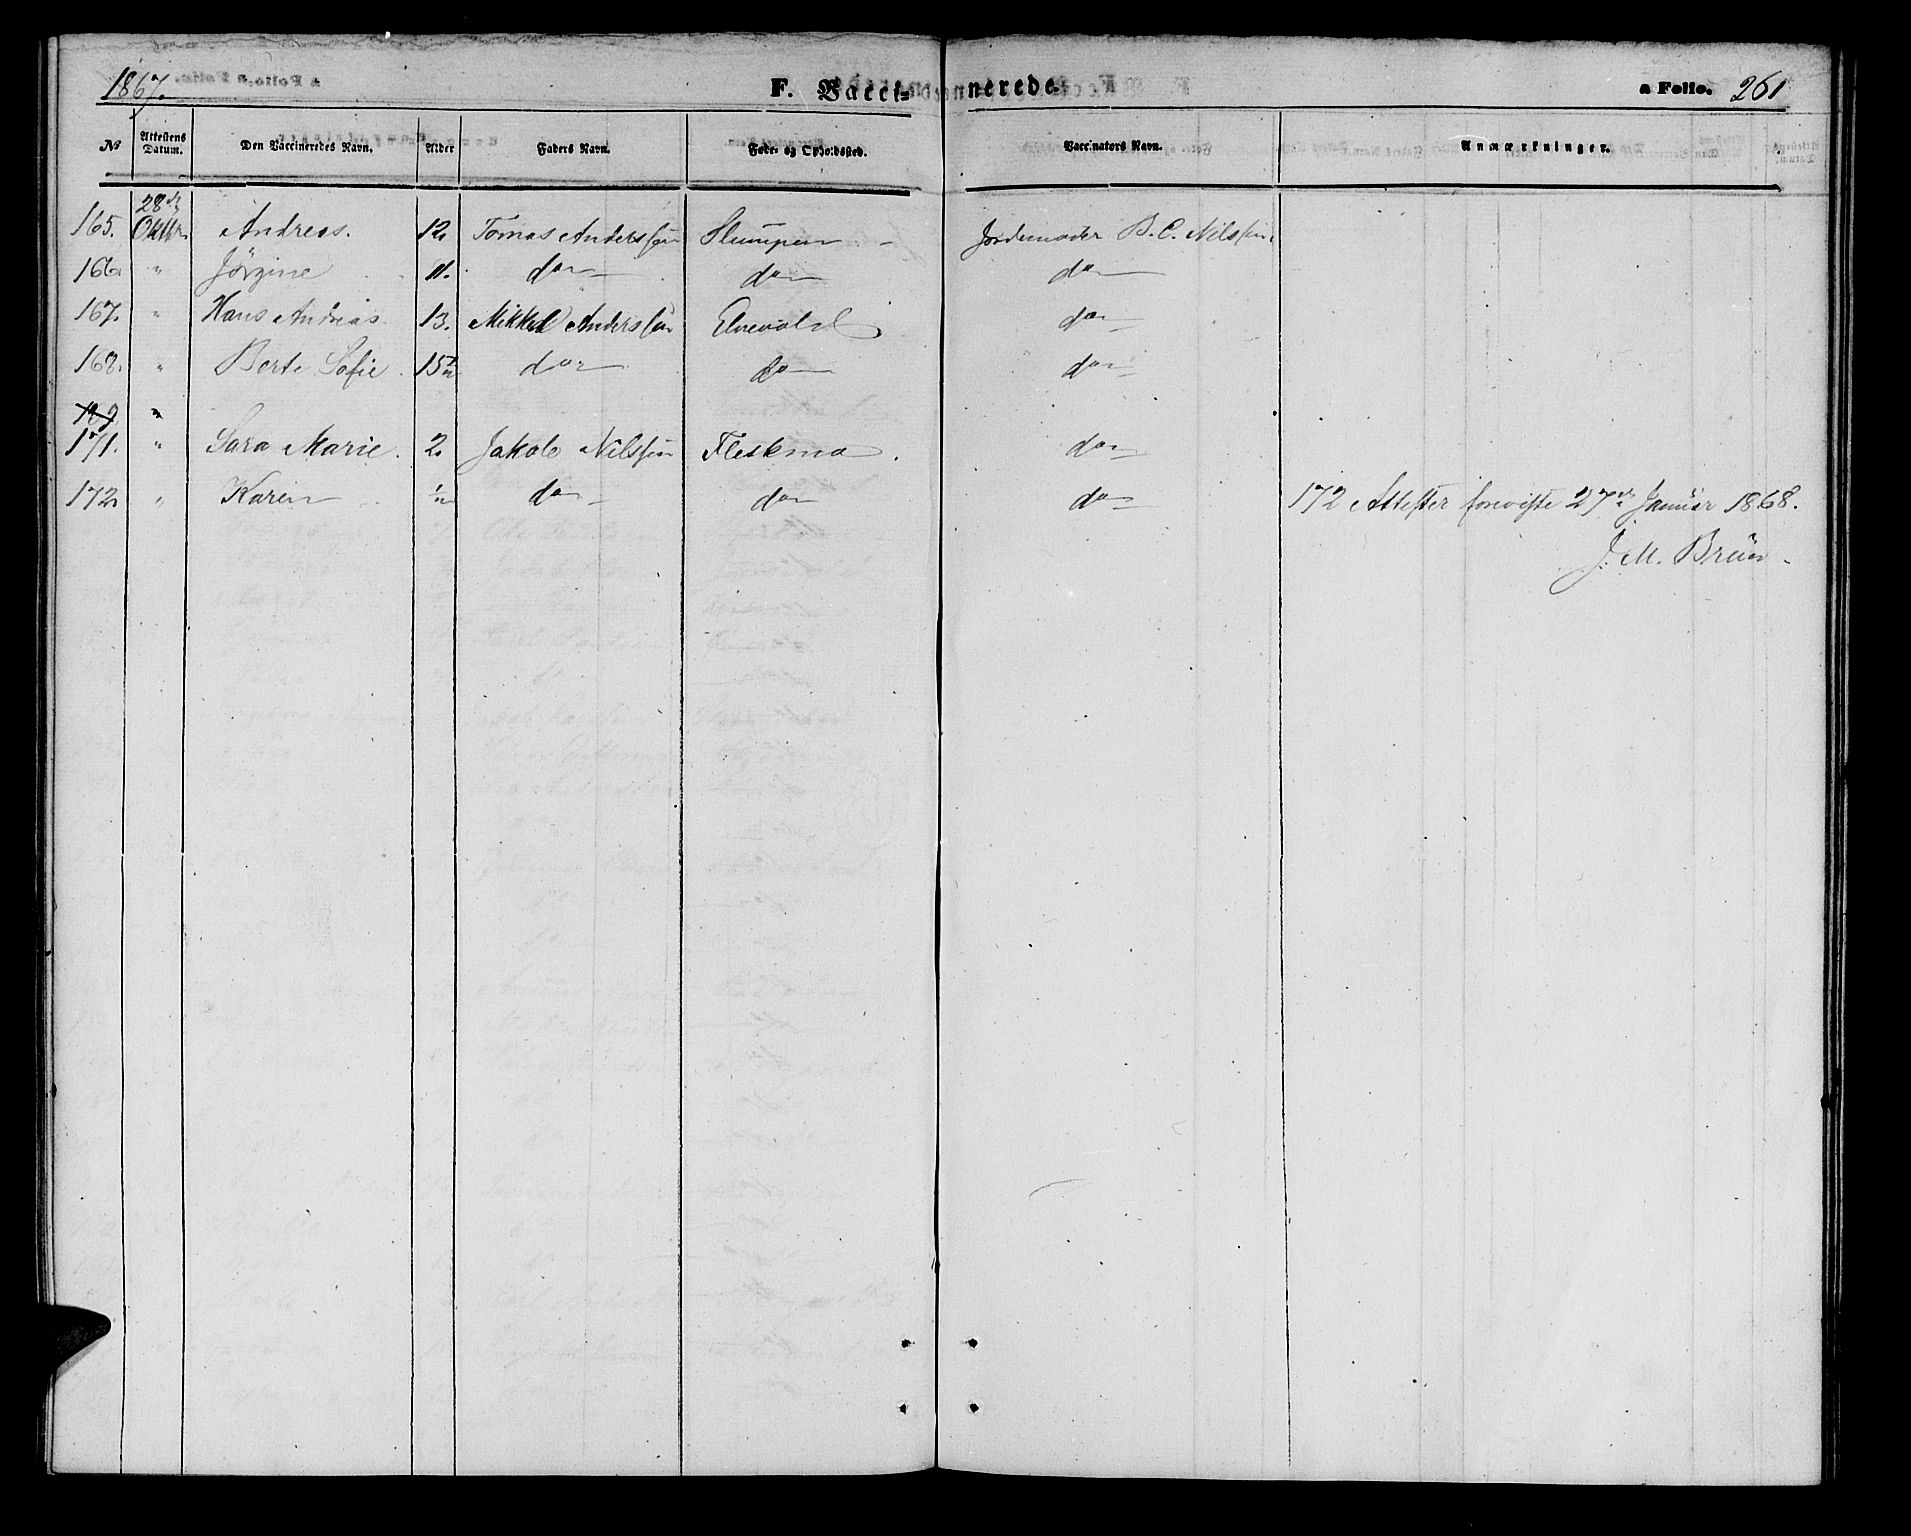 1867. F. Vacci- nerede. a Folio. 261
No Attestens Datum. Den Vaccineredes Navn. Alder Faders Navn. Føde- og Opholdssted. Vaccinators Navn. Anmærkninger.
28de
165. Oktbr. Andreas. 12. Tomas Anderssen Slumpen Jordemoder B. C. Nilssen.
166. " Jörgine 11. do do do
167. " Hans Andreas 13. Mikkel Anderssen Elvevold do
168. " Berte Sofie. do do do
169 "
171. " Sara Marie. 2. Jakob Nilssen Fleskmo. do
172. " Karen do do do 172 Attester foreviste 27de Januar 1868.
J. M. Bruun